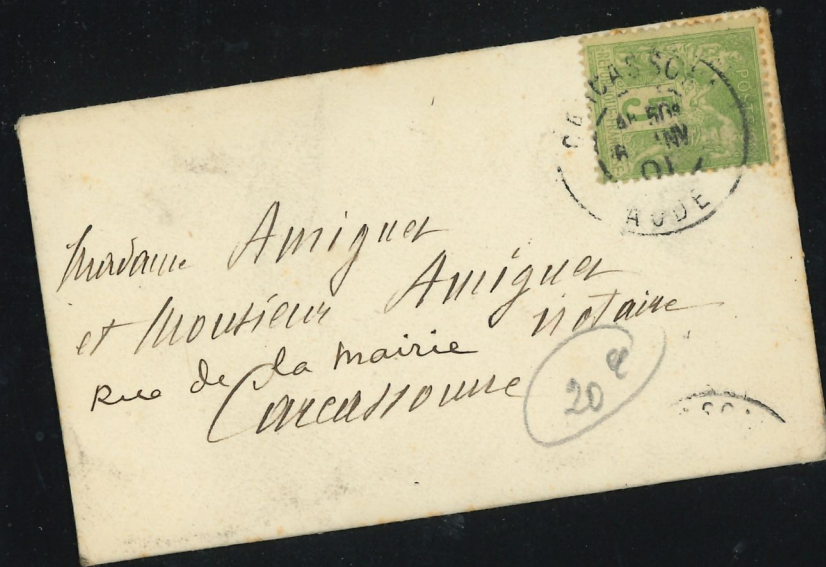 CARCASSONNE
5
POSTE
JANV
01
AUDE
Madame Amiguet
et Monsieur Amiguet
notaire
Rue de la Mairie
Carcassonne
20 €
SSO